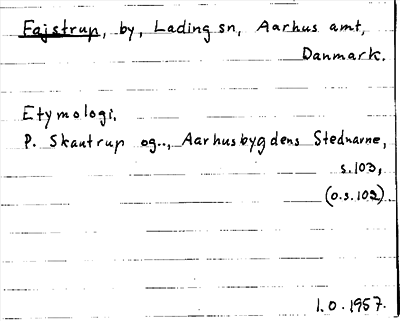 Fajstrup, by, Lading sn, Aarhus amt,
Danmark.
Etymologi.
P. Skautrup og.., Aarhusbygdens Stednavne,
s.103,
(o.s.102)
1.O.1957.